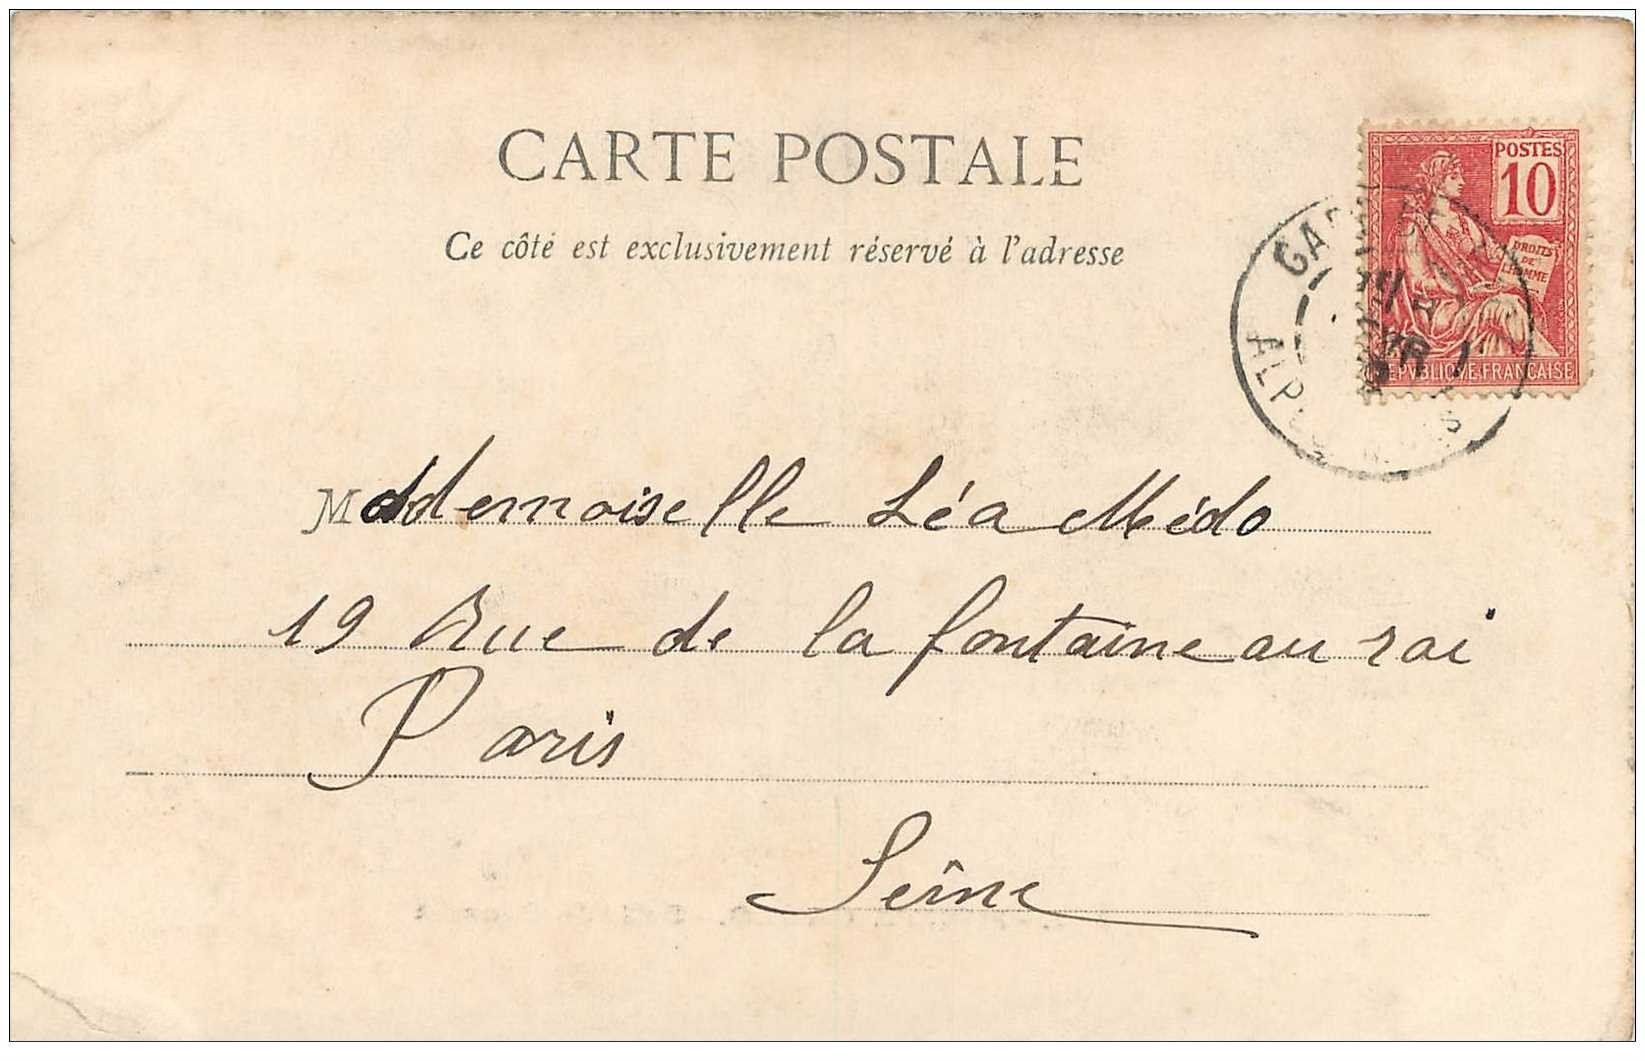 CARTE POSTALE
Ce côté est exclusivement réservé à l'adresse
POSTES
10
DROITS
DE
L'HOMME
REPVBLIQVE FRANCAISE
Mademoiselle Léa Médo
19 Rue de la fontaine au roi
Paris
Seine